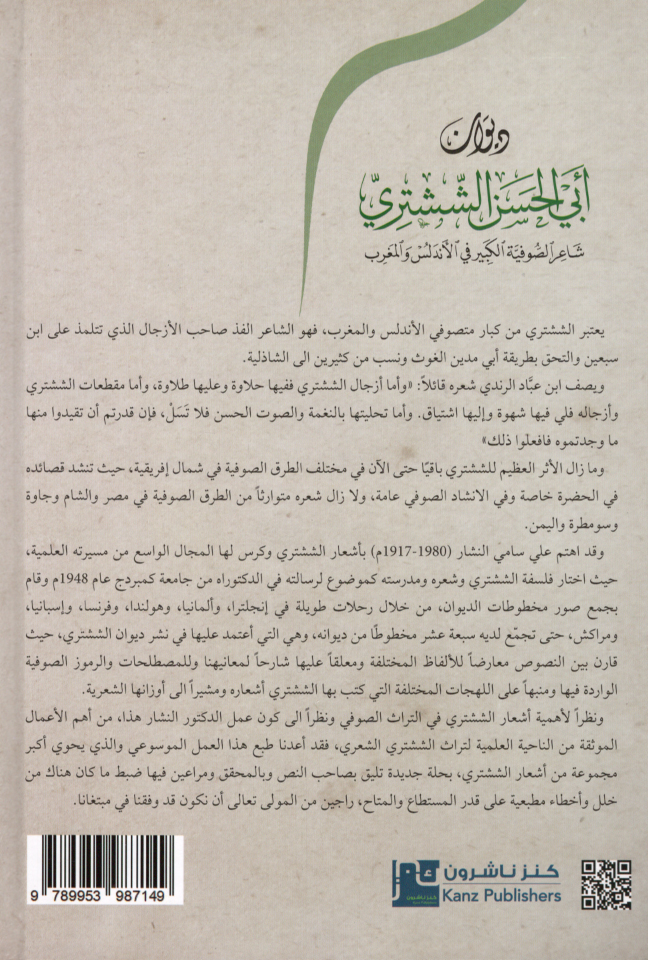 ديوان
أبي الحسن الششتري
شاعر الصوفية الكبير في الأندلس والمغرب
يعتبر الششتري من كبار متصوفي الأندلس والمغرب، فهو الشاعر الفذ صاحب الأزجال الذي تتلمذ على ابن
سبعين والتحق بطريقة أبي مدين الغوث ونسب من كثيرين الى الشاذلية.
ويصف ابن عبَّاد الرندي شعره قائلاً: «وأما أزجال الششتري ففيها حلاوة وعليها طلاوة، وأما مقطعات الششتري
وأزجاله فلي فيها شهوة وإليها اشتياق. وأما تحليتها بالنغمة والصوت الحسن فلا تَسَلْ، فإن قدرتم أن تقيدوا منها
ما وجدتموه فافعلوا ذلك»
وما زال الأثر العظيم للششتري باقيًا حتى الآن في مختلف الطرق الصوفية في شمال إفريقية، حيث تنشد قصائده
في الحضرة خاصة وفي الانشاد الصوفي عامة، ولا زال شعره متوارثاً من الطرق الصوفية في مصر والشام وجاوة
وسومطرة واليمن.
وقد اهتم علي سامي النشار (1980-1917م) بأشعار الششتري وكرس لها المجال الواسع من مسيرته العلمية،
حيث اختار فلسفة الششتري وشعره ومدرسته كموضوع لرسالته في الدكتوراه من جامعة كمبردج عام 1948م وقام
بجمع صور مخطوطات الديوان، من خلال رحلات طويلة في إنجلترا، وألمانيا، وهولندا، وفرنسا، وإسبانيا،
ومراكش، حتى تجمّع لديه سبعة عشر مخطوطًا من ديوانه، وهي التي أعتمد عليها في نشر ديوان الششتري، حيث
قارن بين النصوص معارضاً للألفاظ المختلفة ومعلقاً عليها شارحاً لمعانيهنا وللمصطلحات والرموز الصوفية
الواردة فيها ومنبهاً على اللهجات المختلفة التي كتب بها الششتري أشعاره ومشيراً الى أوزانها الشعرية.
ونظراً لأهمية أشعار الششتري في التراث الصوفي ونظراً الى كون عمل الدكتور النشار هذا، من أهم الأعمال
الموثقة من الناحية العلمية لتراث الششتري الشعري، فقد أعدنا طبع هذا العمل الموسوعي والذي يحوي أكبر
مجموعة من أشعار الششتري، بحلة جديدة تليق بصاحب النص وبالمحقق ومراعين فيها ضبط ما كان هناك من
خلل وأخطاء مطبعية على قدر المستطاع والمتاح، راجين من المولى تعالى أن نكون قد وفقنا في مبتغانا.
كنز ناشرون
Kanz Publishers
كنز ناشرون
9 789953 987149